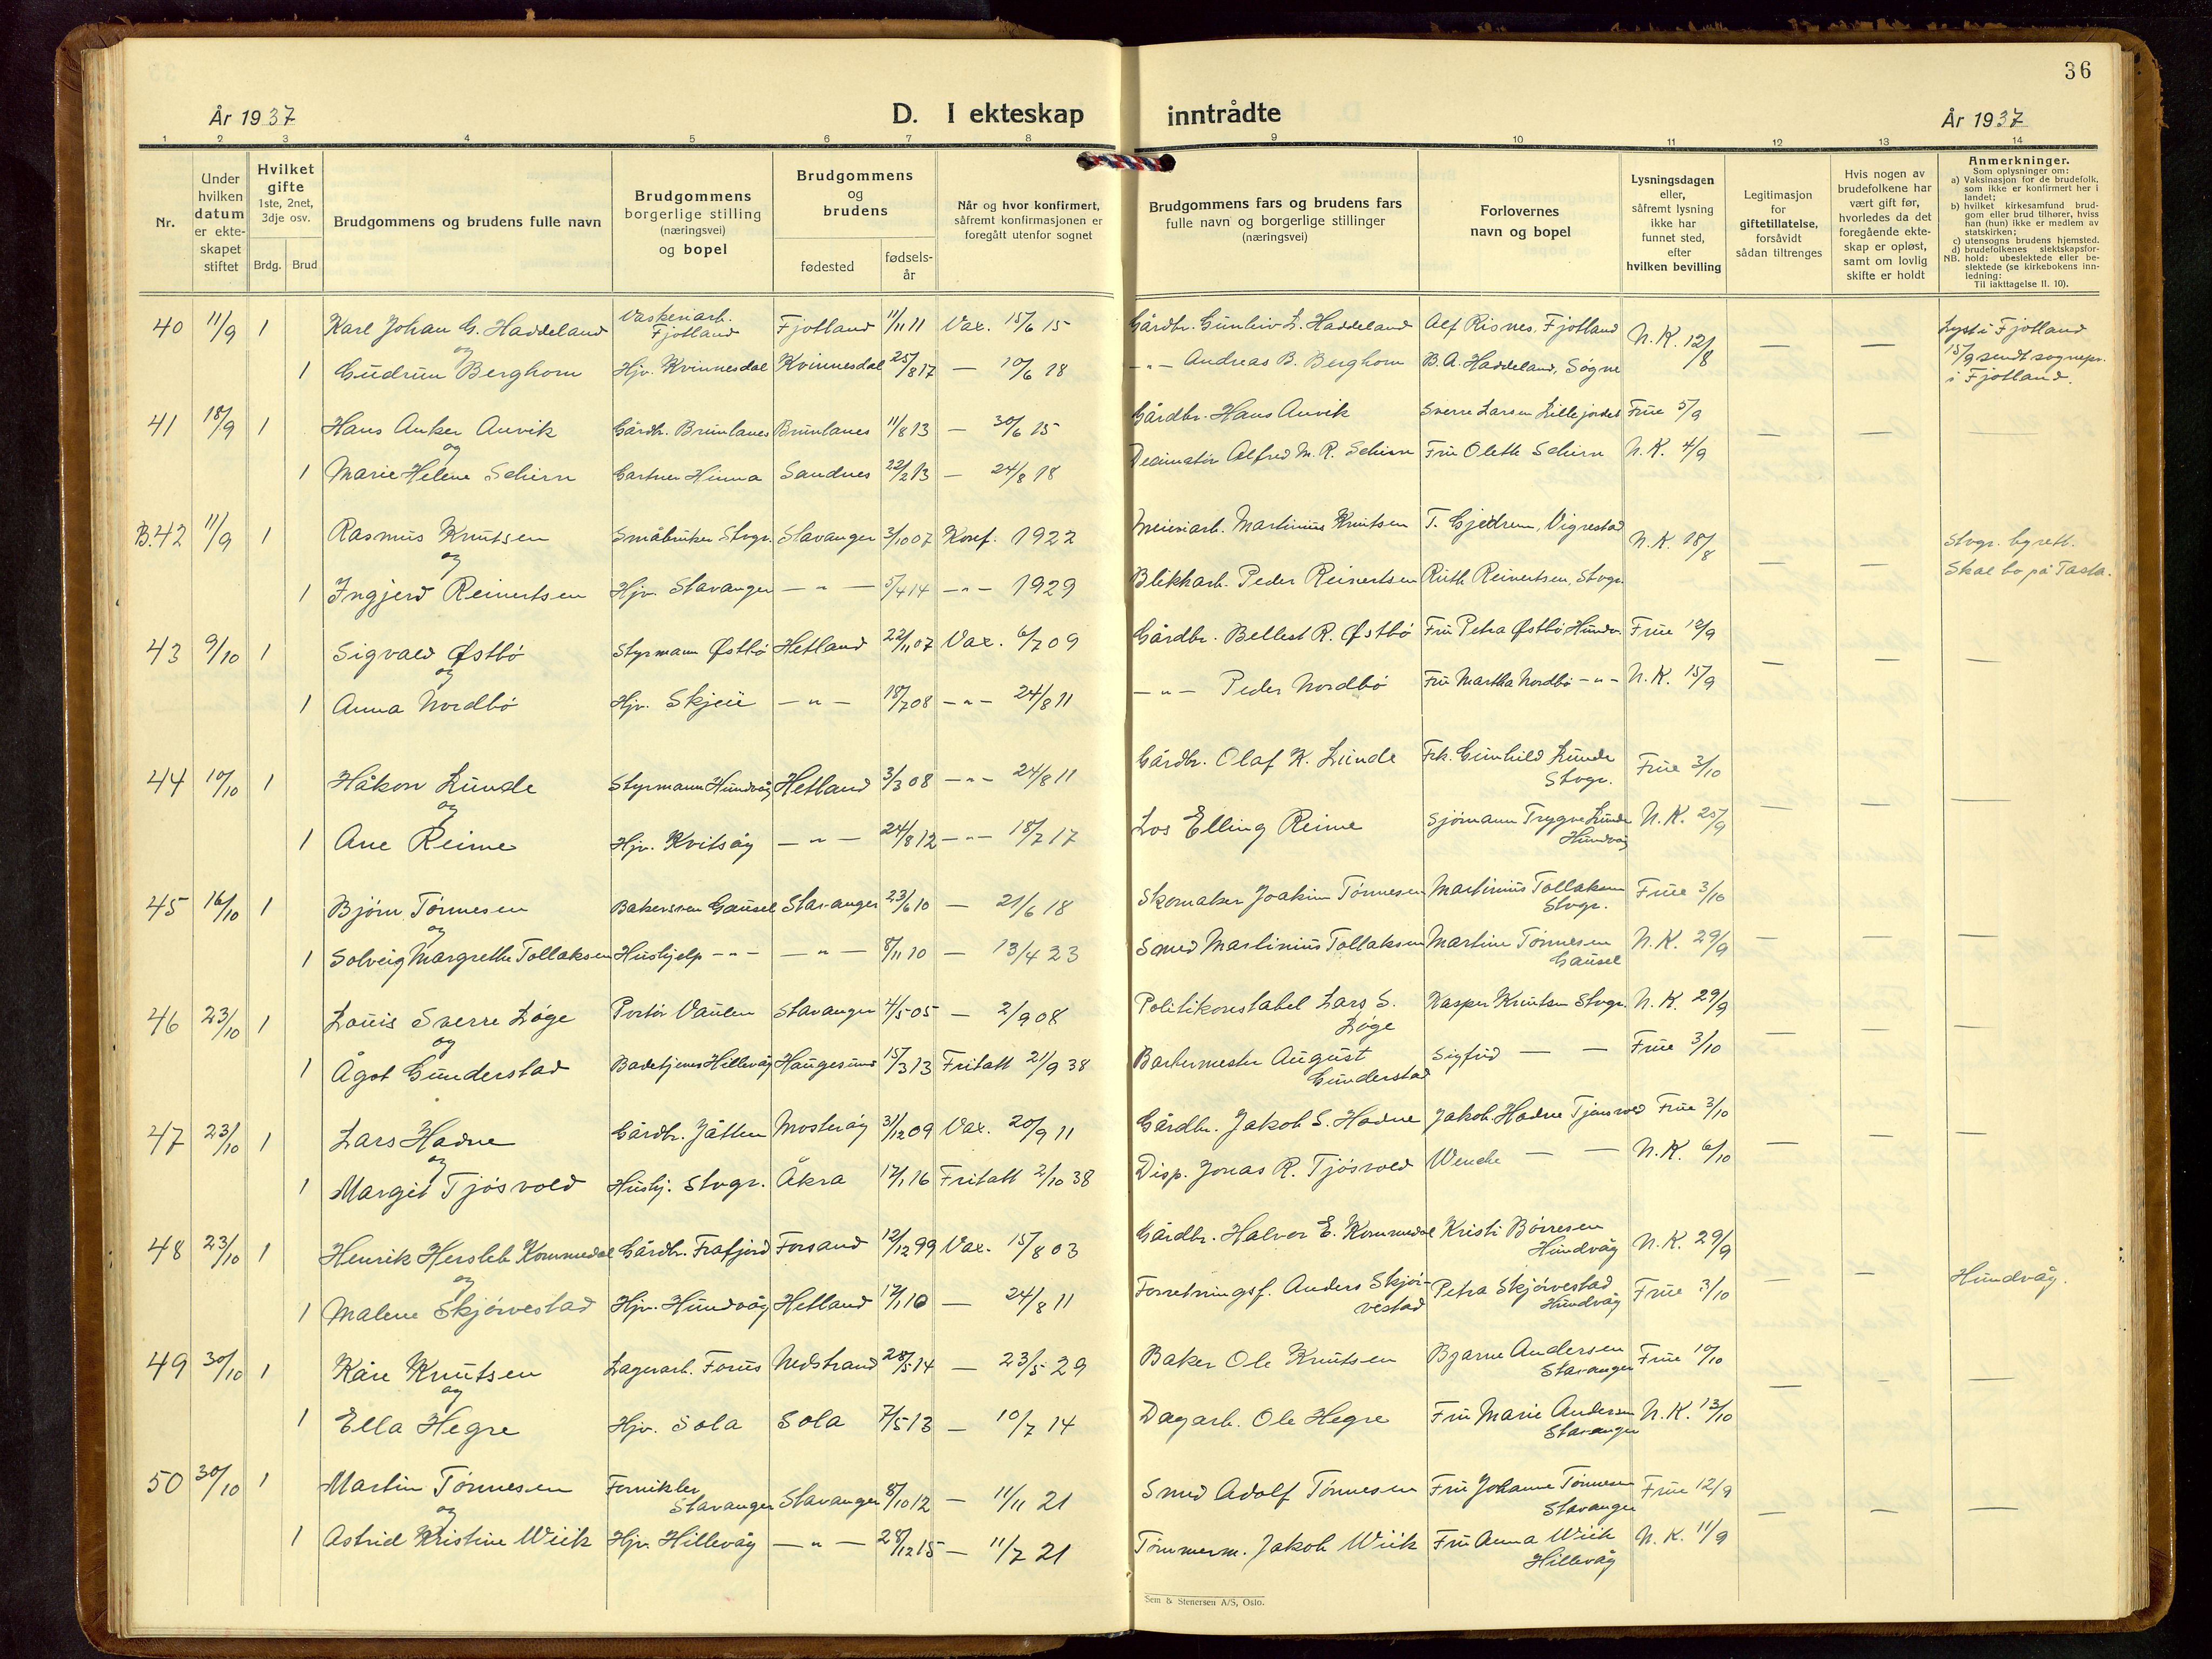 36
År 1937
D. I ekteskap inntrådte
År 1937
1 2 3 4 5 6 7 8 9 10 11 12 13 14
Nr.
Under hvilken datum er ekteskapet stiftet
Hvilket gifte 1ste, 2net, 3dje osv.
Brdg. Brud
Brudgommens og brudens fulle navn
Brudgommens borgerlige stilling (næringsvei) og bopel
Brudgommens og brudens
fødested
fødselsår
Når og hvor konfirmert, såfremt konfirmasjonen er foregått utenfor sognet
Brudgommens fars og brudens fars fulle navn og borgerlige stillinger (næringsvei)
Forlovernes navn og bopel
Lysningsdagen eller, såfremt lysning ikke har funnet sted, efter hvilken bevilling
Legitimasjon for giftetillatelse, forsåvidt sådan tiltrenges
Hvis nogen av brudefolkene har vært gift før, hvorledes da det foregående ekteskap er opløst, samt om lovlig skifte er holdt
Anmerkninger.
Som oplysninger om:
a) Vaksinasjon for de brudefolk, som ikke er konfirmert her i landet;
b) hvilket kirkesamfund brudgom eller brud tilhører, hviss han (hun) ikke er medlem av statskirken;
c) utensogns brudens hjemsted.
d) brudefolkenes slektskapsforhold: ubeslektede eller beslektede (se kirkebokens innledning:
NB. Til iakttagelse II. 10).
40 11/9 1 Karl Johan G. Haddeland Vaskeriarb. Fjotland Fjotland 11/11 11 Vax. 15/6 15 Gårdbr. Gunluv L. Haddeland Alf Risnes, Fjotland N.K. 12/8 — — Lyst i Fjotland
og
1 Gudrun Berghom Hjv. Kvinnesdal Kvinnesdal 25/8 17 — 10/6 18 —"— Andreas B. Berghom B. A. Haddeland, Søgne 15/9 sendt sognepr. i Fjotland.
41 18/9 1 Hans Anker Anvik Gårdbr. Brunlanes Brunlanes 11/8 13 — 30/6 15 Gårdbr. Hans Anvik Sverre Larsen Lillejordet Frue 5/9
og
1 Marie Helene Schirn Gartner Hinna Sandnes 22/2 13 — 24/8 18 Alfred M. R. Schirn Fru Oleth Schirn N.K. 4/9 — —
B.42 11/9 1 Rasmus Knutsen Småbruker Stvgr. Stavanger 3/10 07 Konf. 1922 Meieriarb. Martinius Knutsen T. Gjedrem, Vigrestad N.K. 18/8 — — Stvgr. byrett.
og
1 Ingjerd Reinertsen Hjv. Stavanger —"— 5/4 14 —"— 1929 Blikkarb. Peder Reinertsen Ruth Reinertsen, Stvgr. Skal bo på Tasta.
43 9/10 1 Sigvald Østbø Styrmann Østbø Hetland 22/11 07 Vax. 6/7 09 Gårdbr. Bellest R. Østbø Fru Petra Østbø Hundv. Frue 12/9
og
1 Anna Nordbø Hjv. Skjeie —"— 18/7 08 —"— 24/8 11 —"— Peder Nordbø Fru Martha Nordbø —"— N.K. 15/9 — — —
44 10/10 1 Håkon Lunde Styrmann Hundvåg Hetland 3/3 08 —"— 24/8 11 Gårdbr. Olaf K. Lunde Frk. Gunhild Lunde Stvgr. Frue 3/10
og
1 Ane Reime Hjv. Kvitsøy —"— 24/8 12 —"— 18/7 17 Los Elling Reime Sjømann Trygve Lunde Hundvåg N.K. 25/9 — — —
45 16/10 1 Bjørn Tønnesen Bakersven Gausel Stavanger 23/6 10 — 21/6 18 Skomaker Joakim Tønnesen Martinius Tollaksen Stvgr. Frue 3/10
og
1 Solveig Margrethe Tollaksen Hushjelp —"— —"— 8/11 10 — 13/4 23 Smed Martinius Tollaksen Martine Tønnesen Gausel N.K. 29/9 — — —
46 23/10 1 Louis Sverre Løge Portør Vaulen Stavanger 4/5 05 — 2/9 08 Politikonstabel Lars S. Løge Kasper Knutsen Stvgr. N.K. 29/9
og
1 Ågot Gunderstad Badetjener Hillevåg Haugesund 15/3 13 Fritatt 21/9 38 Barbermester August Gunderstad Sigfrid — — Frue 3/10 — — —
47 23/10 1 Lars Hadne Gårdbr. Jåtten Mosterøy 31/12 09 Vax. 20/9 11 Gårdbr. Jakob S. Hadne Jakob Hadne Tjensvold Frue 3/10
og
1 Margit Tjøsvold Hushj. Stvgr. Åkra 17/1 16 Fritatt 2/10 38 Disp. Jonas R. Tjøsvold Wenche — — N.K. 6/10 — — —
48 23/10 1 Henrik Hersleb Kommedal Gårdbr. Frafjord Forsand 12/12 99 Vax. 15/8 03 Gårdbr. Halvor E. Kommedal Kristi Børresen Hundvåg N.K. 29/9
og
1 Malene Skjørvestad Hjv. Hundvåg Hetland 17/1 10 — 24/8 11 Forretningsf. Anders Skjørvestad Petra Skjørvestad Hundvåg Frue 3/10 — — Hundvåg.
49 30/10 1 Kåre Knutsen Lagerarb. Forus Nedstrand 28/5 14 — 23/5 29 Baker Ole Knutsen Bjarne Andersen Stavanger Frue 10/10
og
1 Ella Hegre Hjv. Sola Sola 7/5 13 — 10/7 14 Dagarb. Ole Hegre Fru Marie Andersen Stavanger N.K. 13/10 — — —
50 30/10 1 Martin Tønnesen Fornikler Stavanger Stavanger 8/10 12 — 11/11 21 Smed Adolf Tønnesen Fru Johanne Tønnesen Stavanger Frue 12/9
og
1 Astrid Kristine Wiik Hjv. Hillevåg —"— 28/12 15 — 11/7 21 Tømmerm. Jakob Wiik Fru Anna Wiik Hillevåg N.K. 11/9 — — —
Sem & Stenersen A/S, Oslo.